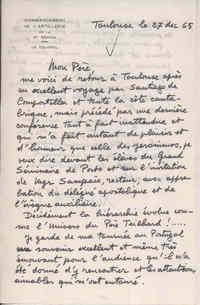 COMMANDEMENT
DE L'ARTILLERIE
DE LA
4e RÉGION
LE COLONEL
Toulouse le 27 dec 65
Mon Père,
me voici de retour à Toulouse après
un excellent voyage par Santiago de
Compostelle et toute la côte canta-
brique, mais précédé par une dernière
conférence tout à fait inattendue et
qui m'a fait autant de plaisir et
d'honneur que celle des geronimos, je
veux dire devant les élèves du Grand
Séminaire de Porto et sur l'invitation
de Mgr Sampaio, recteur, avec appro-
bation du délégué apostolique et de
l'évêque auxiliaire.
Décidément la hiérarchie évolue com-
me l'Univers du Père Teilhard !.....
Je garde de ma tournée au Portugal
un souvenir excellent et même très
émouvant pour l'audience qu'il m'a
été donné d'y rencontrer et les attentions
aimables qui m'ont entouré.